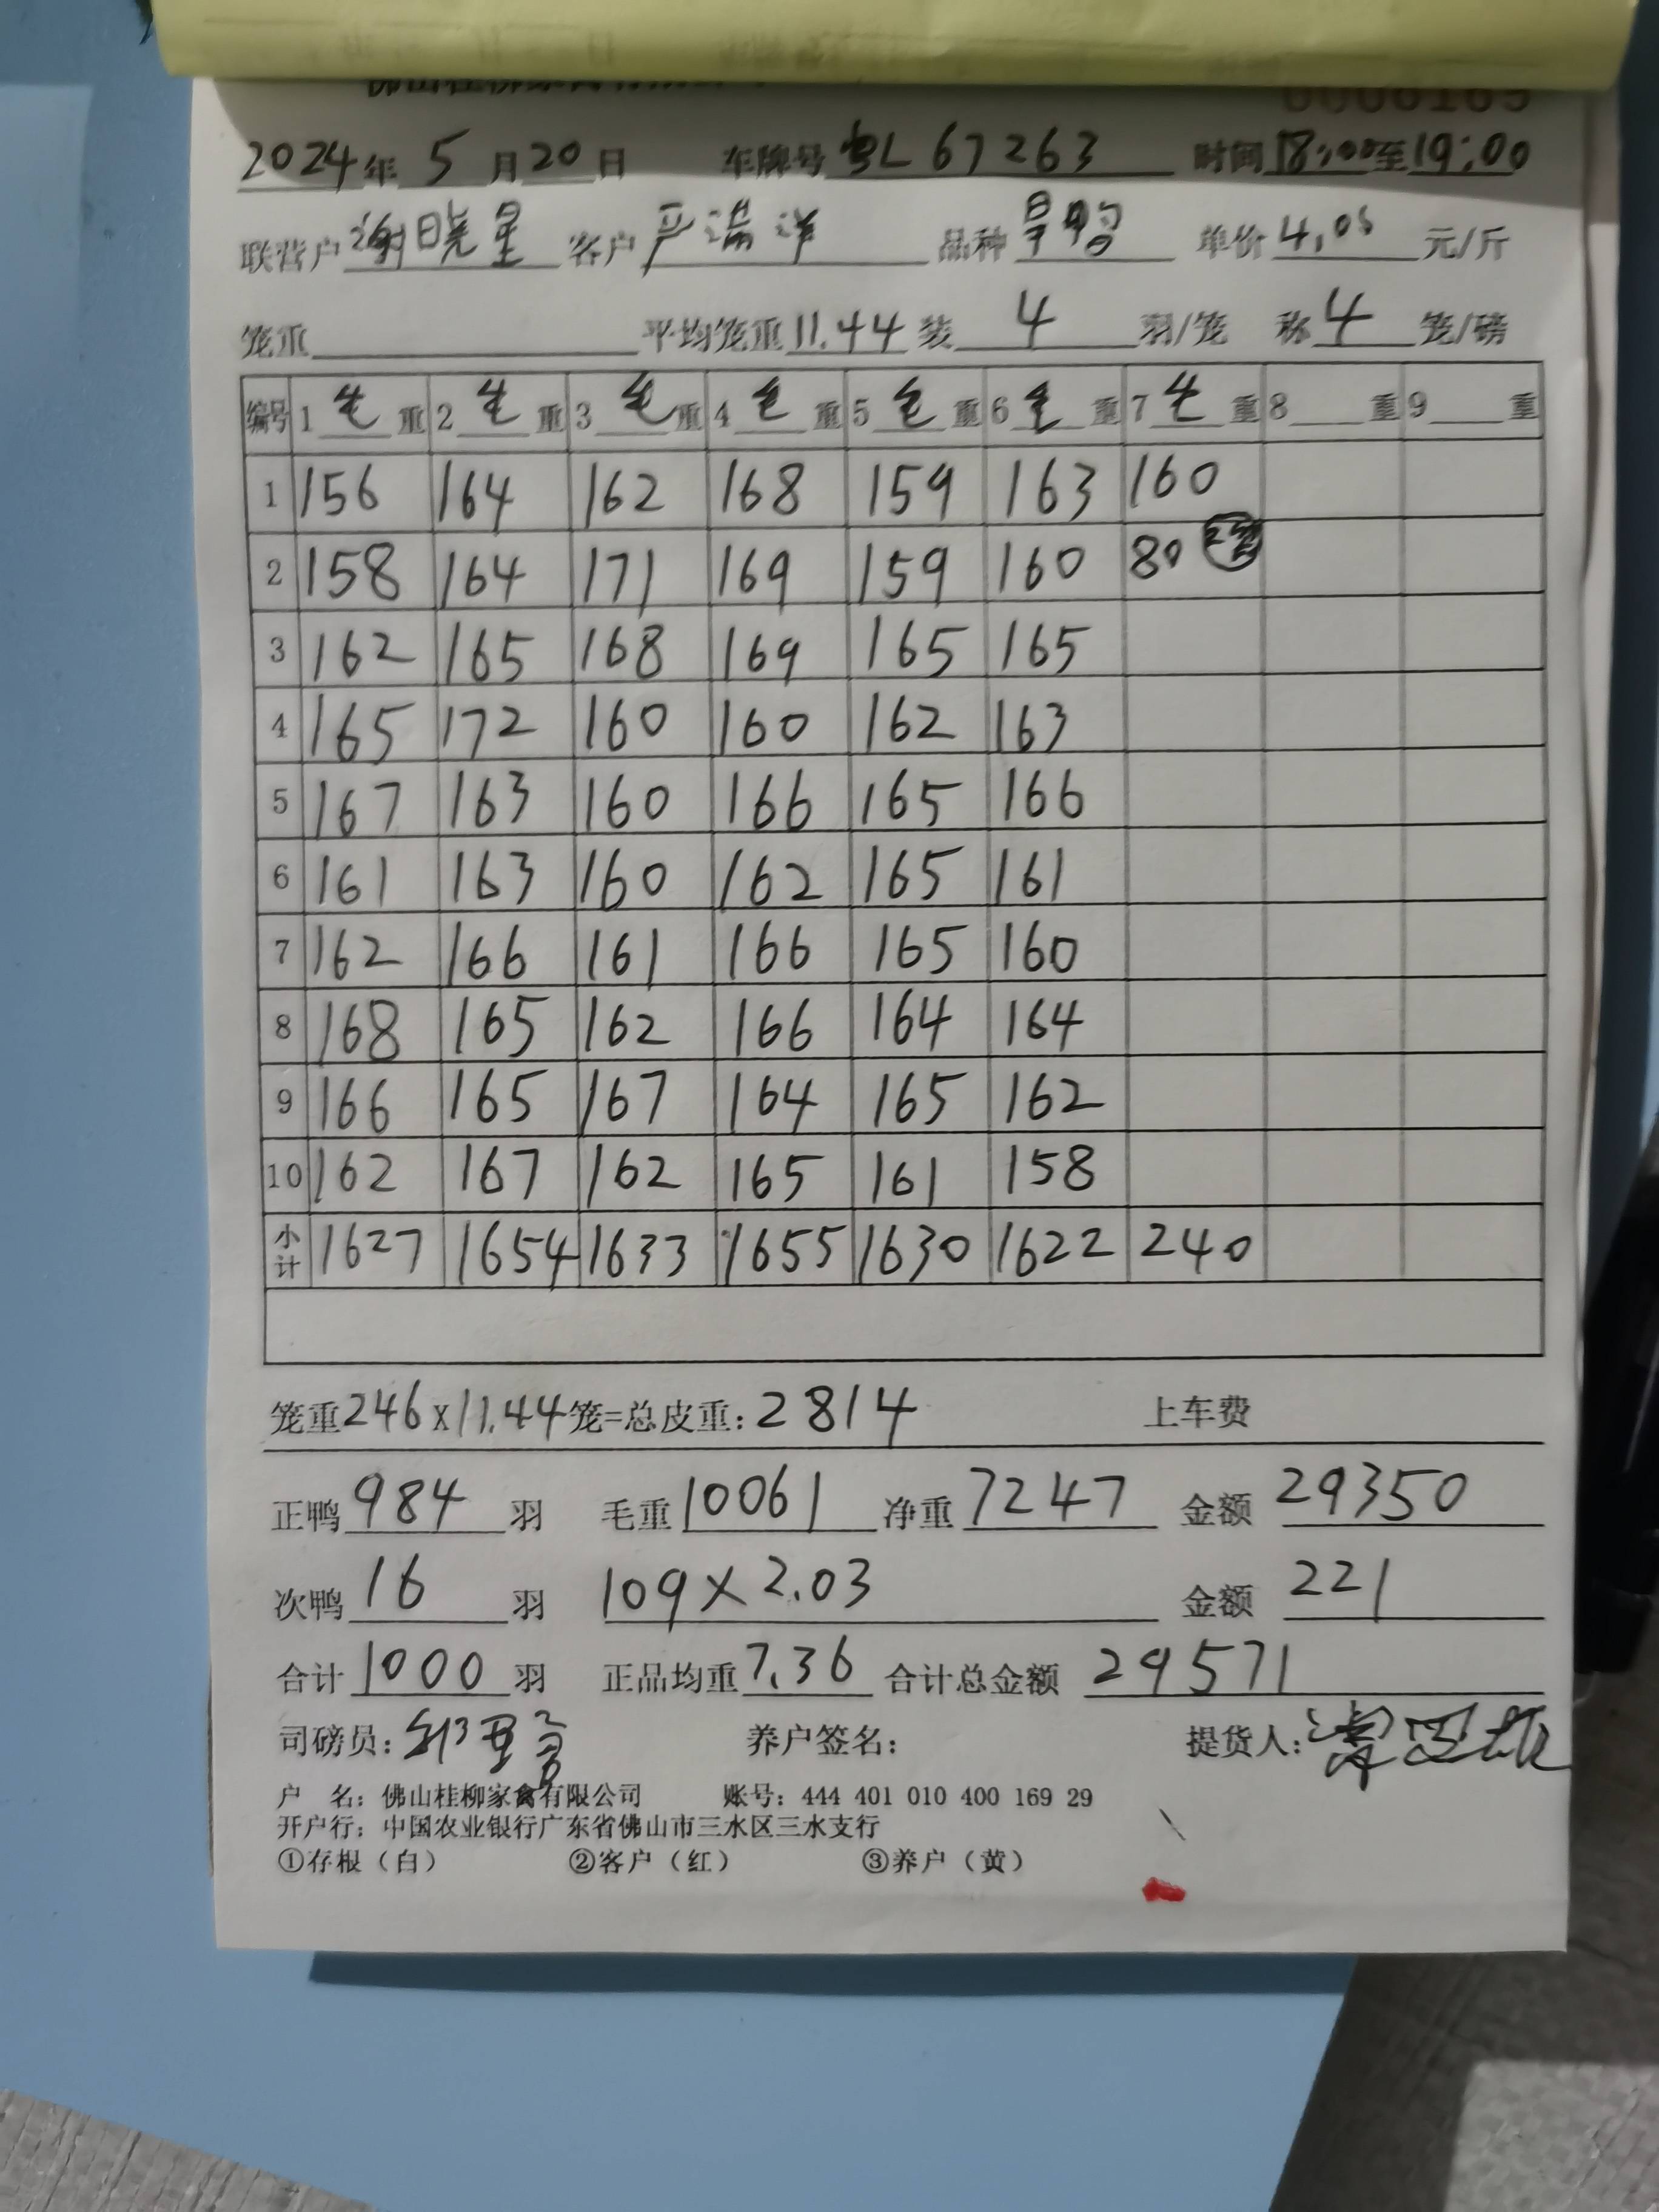 2024年 5月20日 车牌号 粤L 67263 时间18:00至19:00
联营户 谢晓星 客户 严满洋 品种 旱鸭 单价 4.05 元/斤
笼重 平均笼重 11.44 装 4 羽/笼 称 4 笼/磅
编号 1 毛 重 2 毛 重 3 毛 重 4 毛 重 5 毛 重 6 毛 重 7 毛 重 8 重 9 重
1 156 164 162 168 159 163 160
2 158 164 171 169 159 160 80
3 162 165 168 169 165 165
4 165 172 160 160 162 163
5 167 163 160 166 165 166
6 161 163 160 162 165 161
7 162 166 161 166 165 160
8 168 165 162 166 164 164
9 166 165 167 164 165 162
10 162 167 162 165 161 158
小计 1627 1654 1633 1655 1630 1622 240
笼重 246 x 11.44 笼=总皮重: 2814 上车费
正鸭 984 羽 毛重 10061 净重 7247 金额 29350
次鸭 16 羽 109 × 2.03 金额 221
合计 1000 羽 正品均重 7.36 合计总金额 29571
司磅员: 养户签名: 提货人:
户 名: 佛山桂柳家禽有限公司 账号: 444 401 010 400 169 29
开户行: 中国农业银行广东省佛山市三水区三水支行
①存根（白） ②客户（红） ③养户（黄）